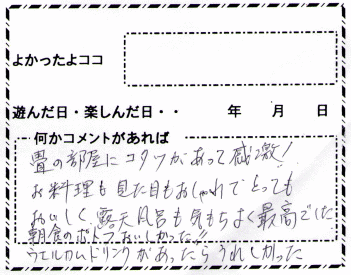 よかったよココ
遊んだ日・楽しんだ日・・　年　月　日
何かコメントがあれば
畳の部屋にコタツがあって感激!
お料理も見た目もおしゃれでとっても
おいしく、露天風呂も気もちよく最高でした
朝食のポトフおいしかった!!
ウエルカムドリンクがあったらうれしかった